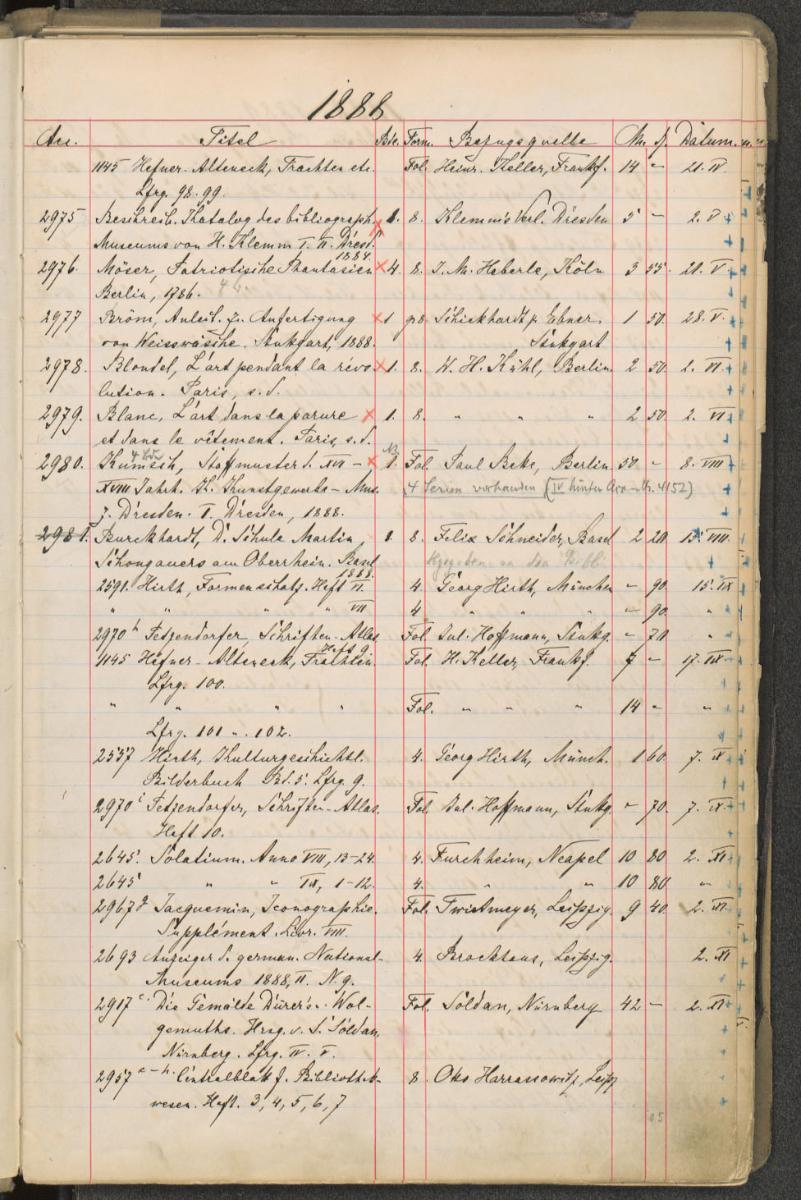 1888
Acc. Titel Bde. Form. Bezugsquelle M. Datum.
1145 Hefner-Alteneck, Trachten etc. Fol. Heinr. Keller, Frankf. 14 — 21. IV.
Lfrg. 98. 99.
2975 Beschreib. Katalog des bibliograph. 1. 8. Klemm's Verl. Dresden 5 — 2. V.
Museums von H. Klemm I. II. Dresd. 1884.
2976. Möser, Patriotische Phantasien 4. 8. J. M. Heberle, Köln 3 55. 21. V.
Berlin, 1786. 4 b.
2977 Bröm, Anleit. z. Anfertigung 1 gr8. Schickhardt & Ebner 1 50. 28. V.
von Weisswäsche. Stuttgart, 1888. Stuttgart
2978. Blondel, L'art pendant la révo- 1. 8. W. H. Kühl, Berlin 2 50. 2. VI.
lution. Paris, s. d.
2979. Blanc, L'art dans la parure 1. 8. " " " 2 50 2. VI.
et dans le vêtement. Paris, s. d.
4 Bde
2980. Kumsch, Stoffmuster d. XVI - 1. Fol. Paul Bette, Berlin 50 — 8. VIII
XVIII Jahrh. K. Kunstgewerbe-Mus. 4 Serien vorhanden (IV hinter Acc-Nr. 4152)
z. Dresden. I. Dresden, 1888.
2981. Burckhardt, D. Schule Martin 1. 8. Felix Schneider, Basel 2 20 15. VIII.
Schongauers am Oberrhein. Basel 1888.
2591. Hirth, Formenschatz. Heft VI. 4. Georg Hirth, München — 90. 15. IX
" " " " VII 4 " " " — 90. "
2970 h Petzendorfer, Schriften-Atlas Heft 9. Fol. Jul. Hoffmann, Stuttg. — 70 "
1145 Hefner-Alteneck, Trachten. Fol. H. Keller, Frankf. 7 — 17. IX.
Lfrg. 100.
" " " " Fol. " " " 14 — "
Lfrg. 101 u. 102.
2557 Hirth, Kulturgeschichtl. 4. Georg Hirth, Münch. 1 60. 7. IX
Bilderbuch Bd. 5. Lfrg. 9.
2970 i Petzendorfer, Schriften-Atlas. Fol. Jul. Hoffmann, Stuttg — 70. 7. IX.
Heft 10.
2645. Solatium. Anno VIII, 13-24. 4. Furchheim, Neapel 10 80 2. XI.
2645 " " IX, 1-12. 4. " " 10 80 "
2967 g Jacquemin, Iconographie. Fol. Twietmeyer, Leipzig. 9 40. 2. XI.
Supplément. Livr. VIII.
2693 Anzeiger d. german. National- 4. Brockhaus, Leipzig. 2. XI
Museums 1888, II. N 9.
2917 c. Die Gemälde Dürer's u. Wol- Fol. Soldan, Nürnberg 42 — 2. XI
gemuths. Hrsg. v. S. Soldan,
Nürnberg. Lfrg. IV. V.
2957 e-h. Centralblatt f. Bibliothek- 8. Otto Harrassowitz, Leipz
wesen. Heft. 3, 4, 5, 6, 7